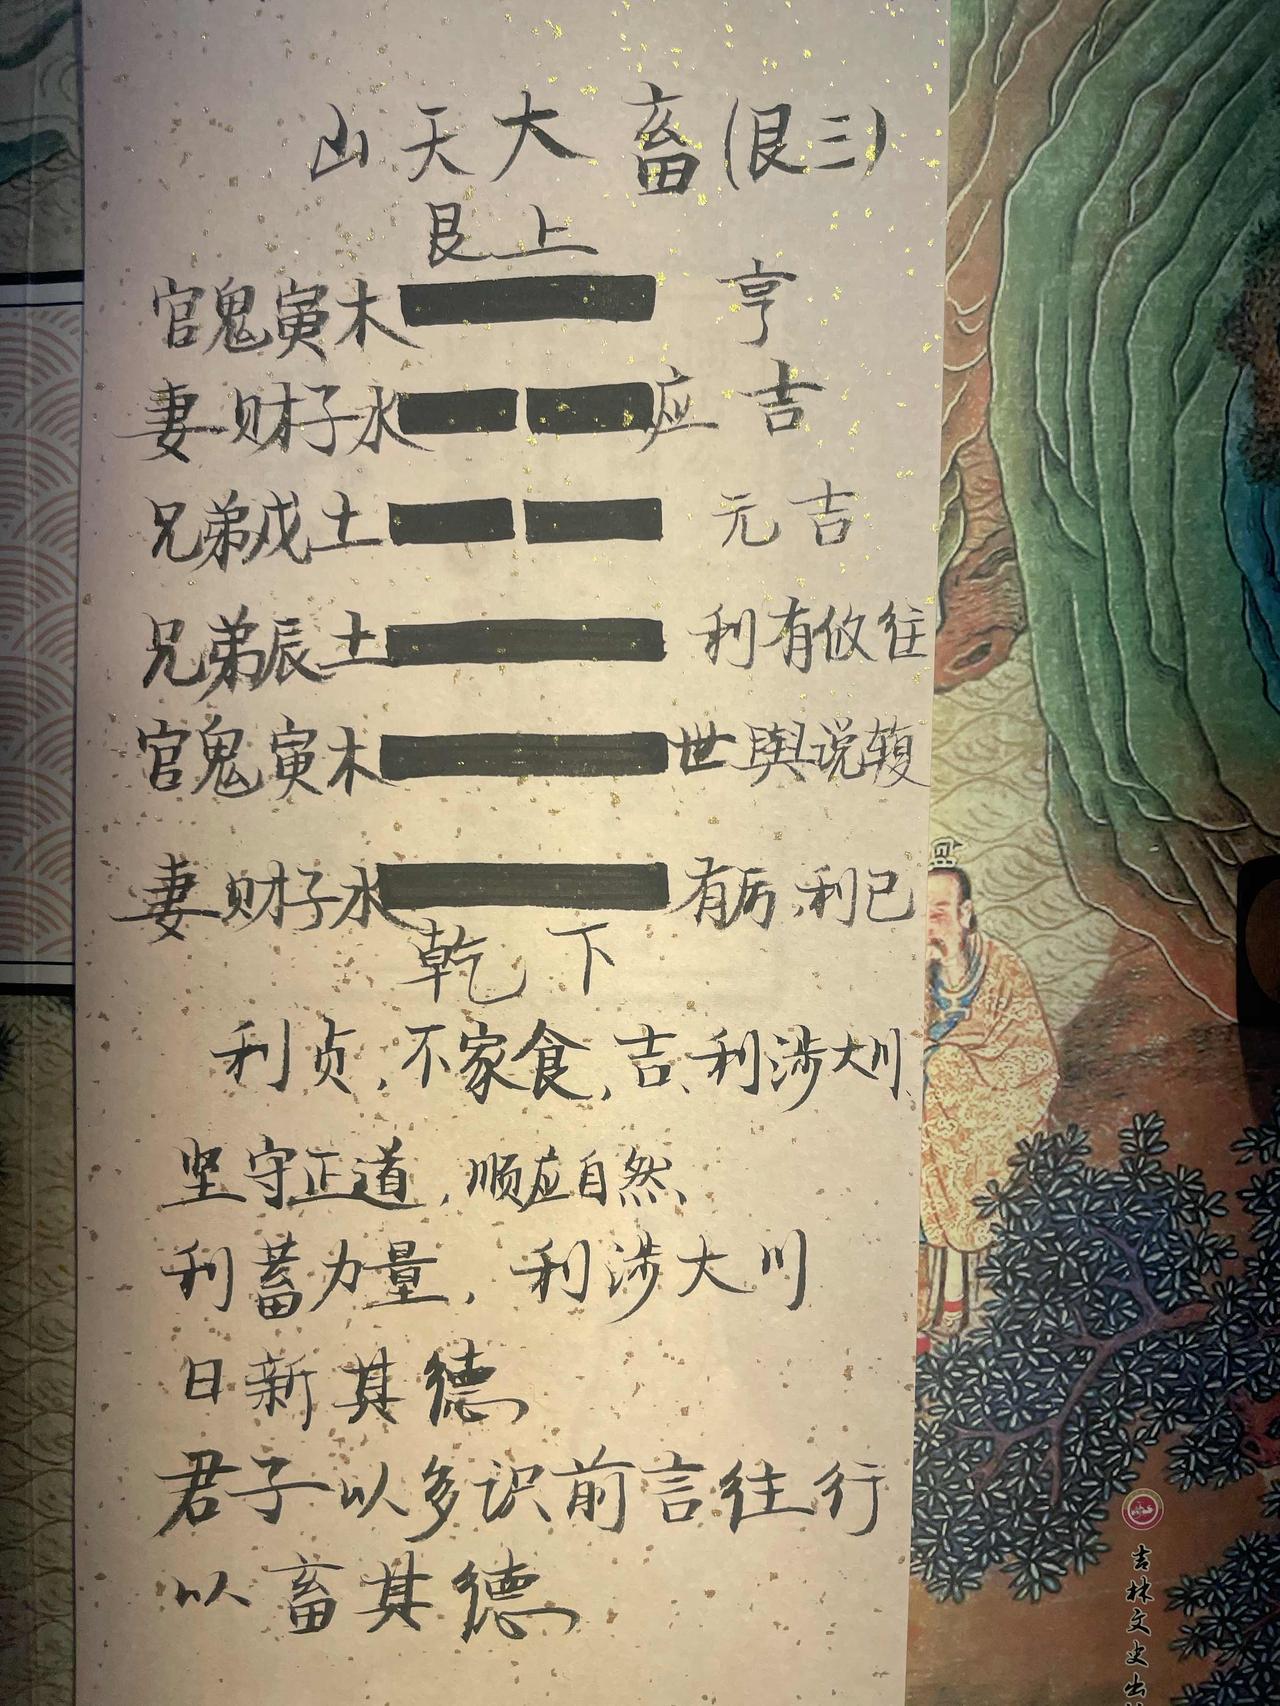 山天大畜(艮三)
艮上
官鬼寅木 亨
妻财子水 应 吉
兄弟戌土 元吉
兄弟辰土 利有攸往
官鬼寅木 世 舆说輹
妻财子水 有厉,利已
乾下
利贞,不家食,吉,利涉大川
坚守正道,顺应自然,
利蓄力量,利涉大川
日新其德
君子以多识前言往行
以畜其德
吉林文史出